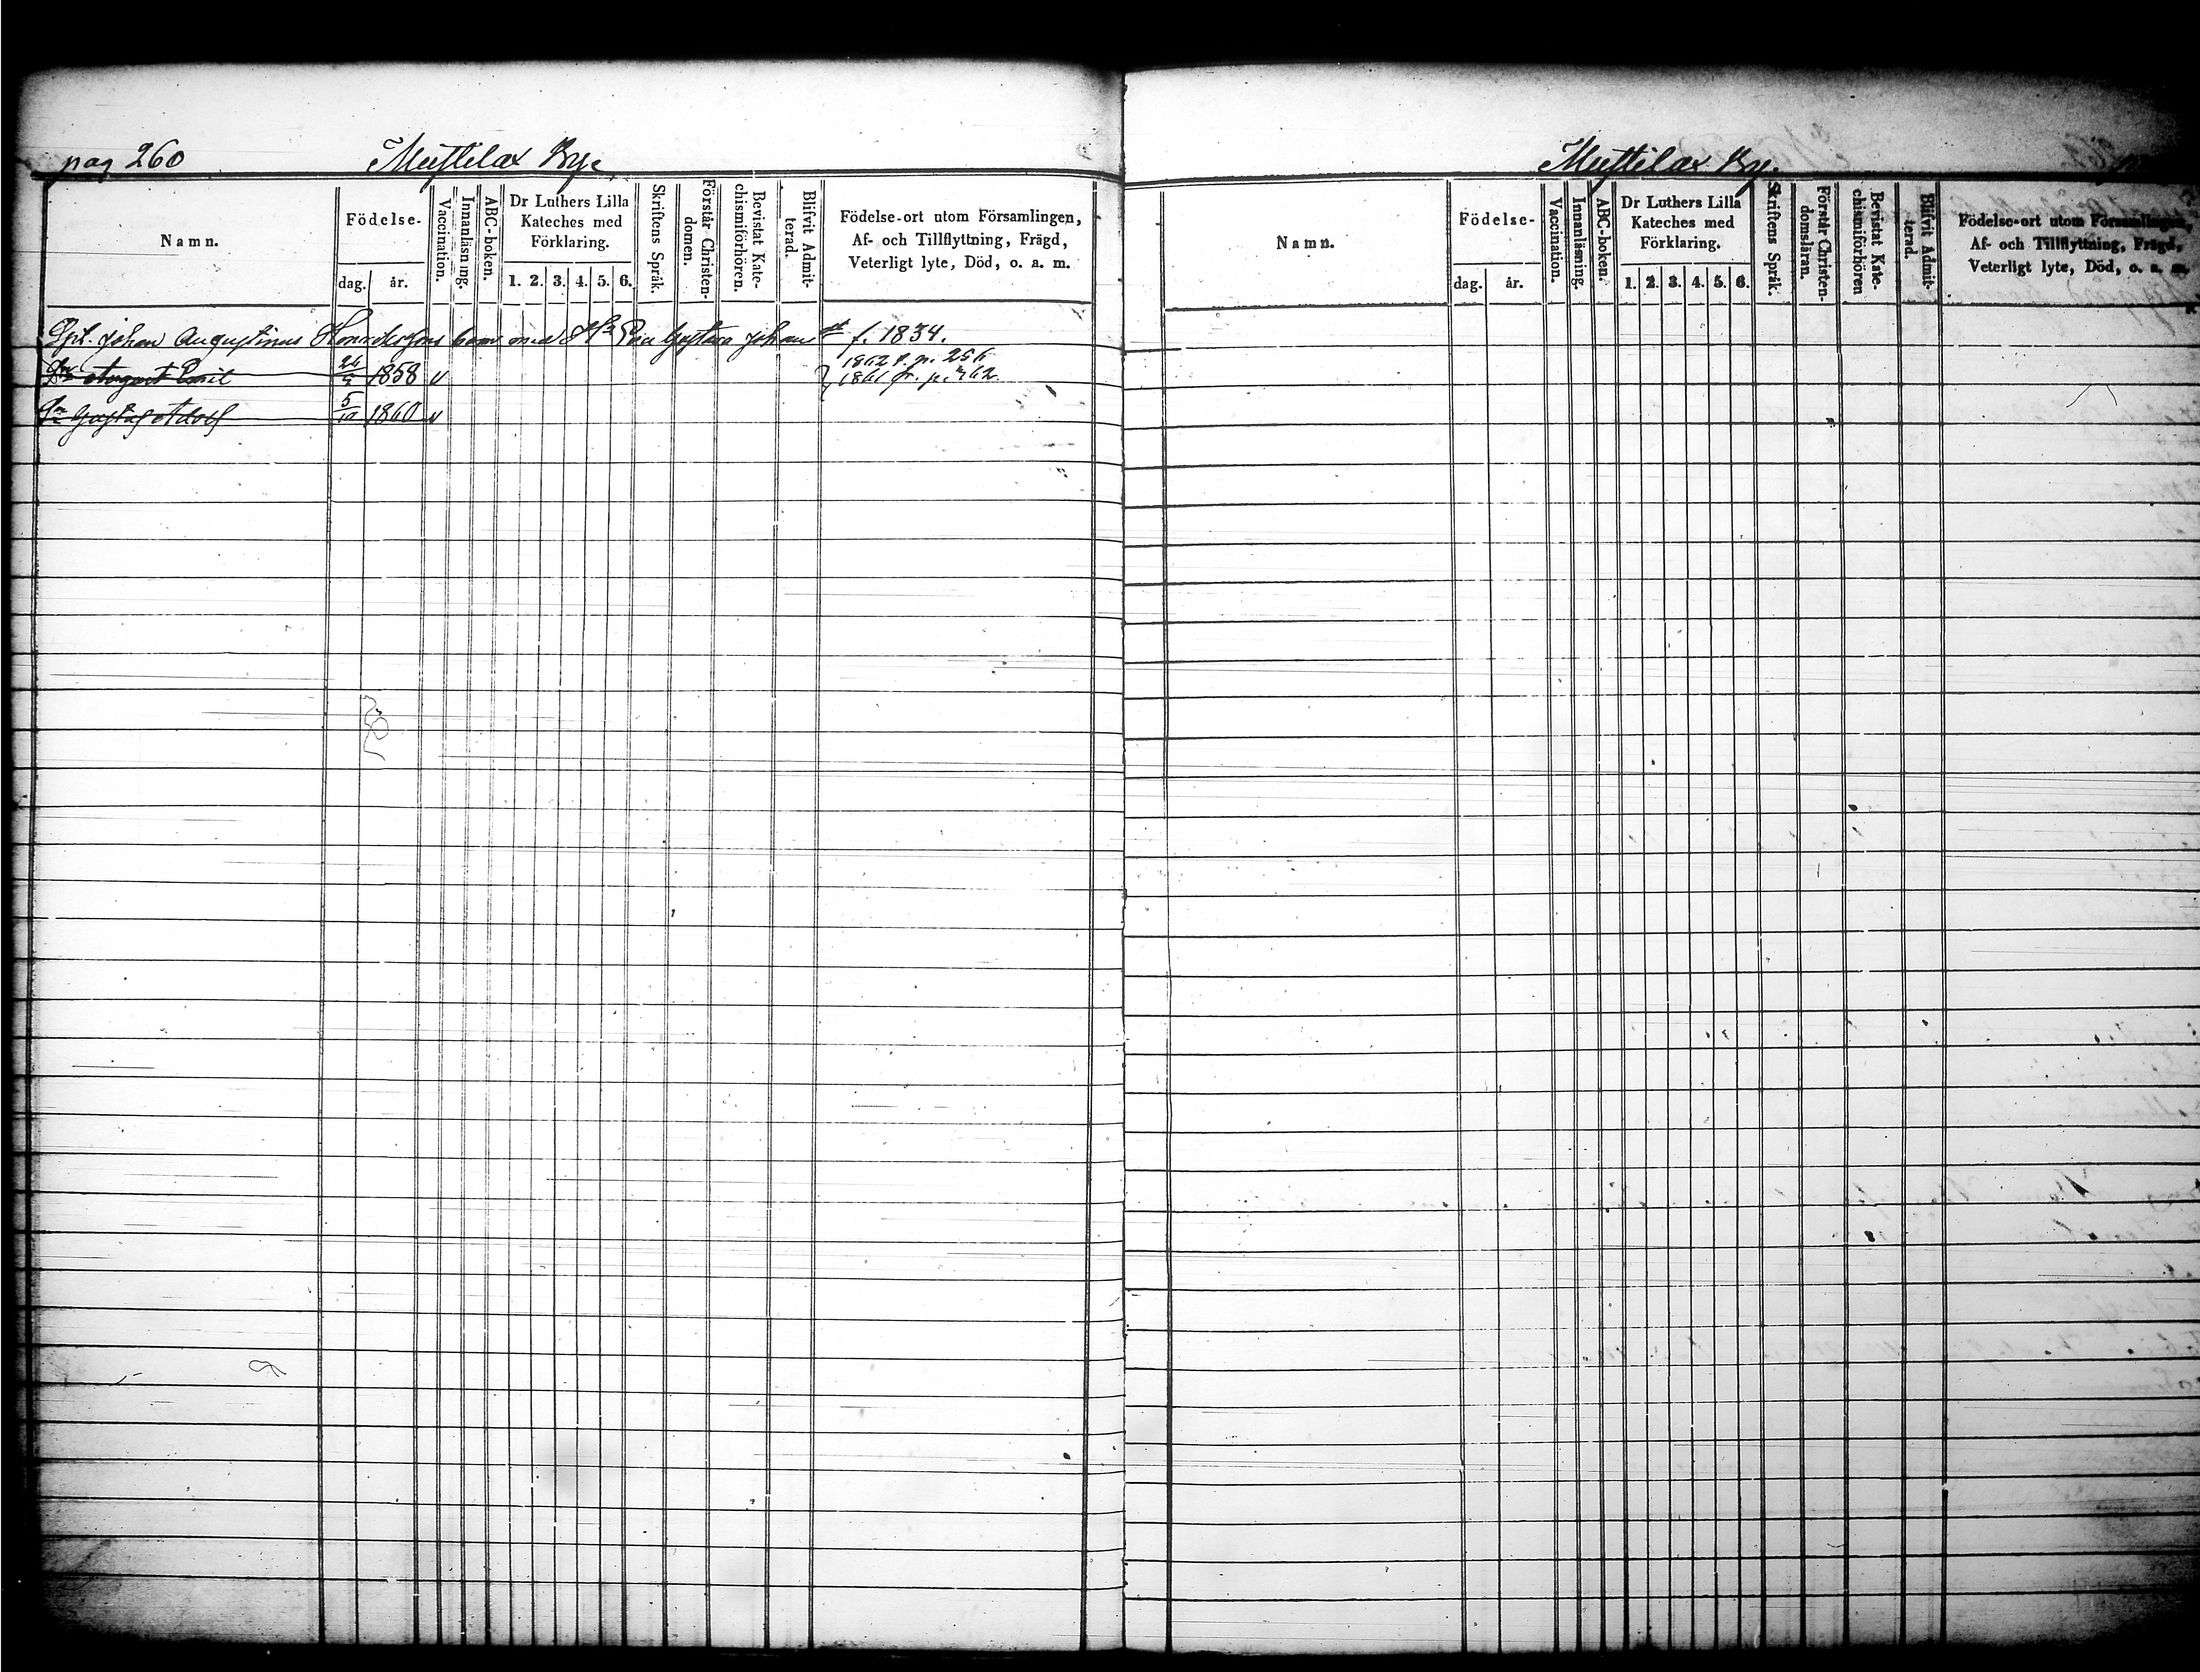 pag 260 Mustilax By.
Namn.
Födelse-
dag. år.
Vaccination.
Innanläsning.
ABC-boken.
Dr Luthers Lilla
Kateches med
Förklaring.
1. 2. 3. 4. 5. 6.
Skriftens Språk.
Förstår Christen-
domen.
Bevistat Kate-
chismiförhören.
Blifvit Admit-
terad.
Födelse-ort utom Församlingen,
Af- och Tillflyttning, Frägd,
Veterligt lyte, Död, o. a. m.
Johan Augustinus barn med Eva Gustava Johans f. 1834.
1862 t. p. 256
August Emil 26 1858 v 1861 fr. p.
Sn Gustaf Adolf 5/10 1860 v
Mustilax By.
Namn.
Födelse-
dag. år.
Vaccination.
Innanläsning.
ABC-boken.
Dr Luthers Lilla
Kateches med
Förklaring.
1. 2. 3. 4. 5. 6.
Skriftens Språk.
Förstår Christen-
domsläran.
Bevistat Kate-
chismiförhören
Blifvit Admit-
terad.
Födelse-ort utom Församlingen,
Af- och Tillflyttning, Frägd,
Veterligt lyte, Död, o. a. m.